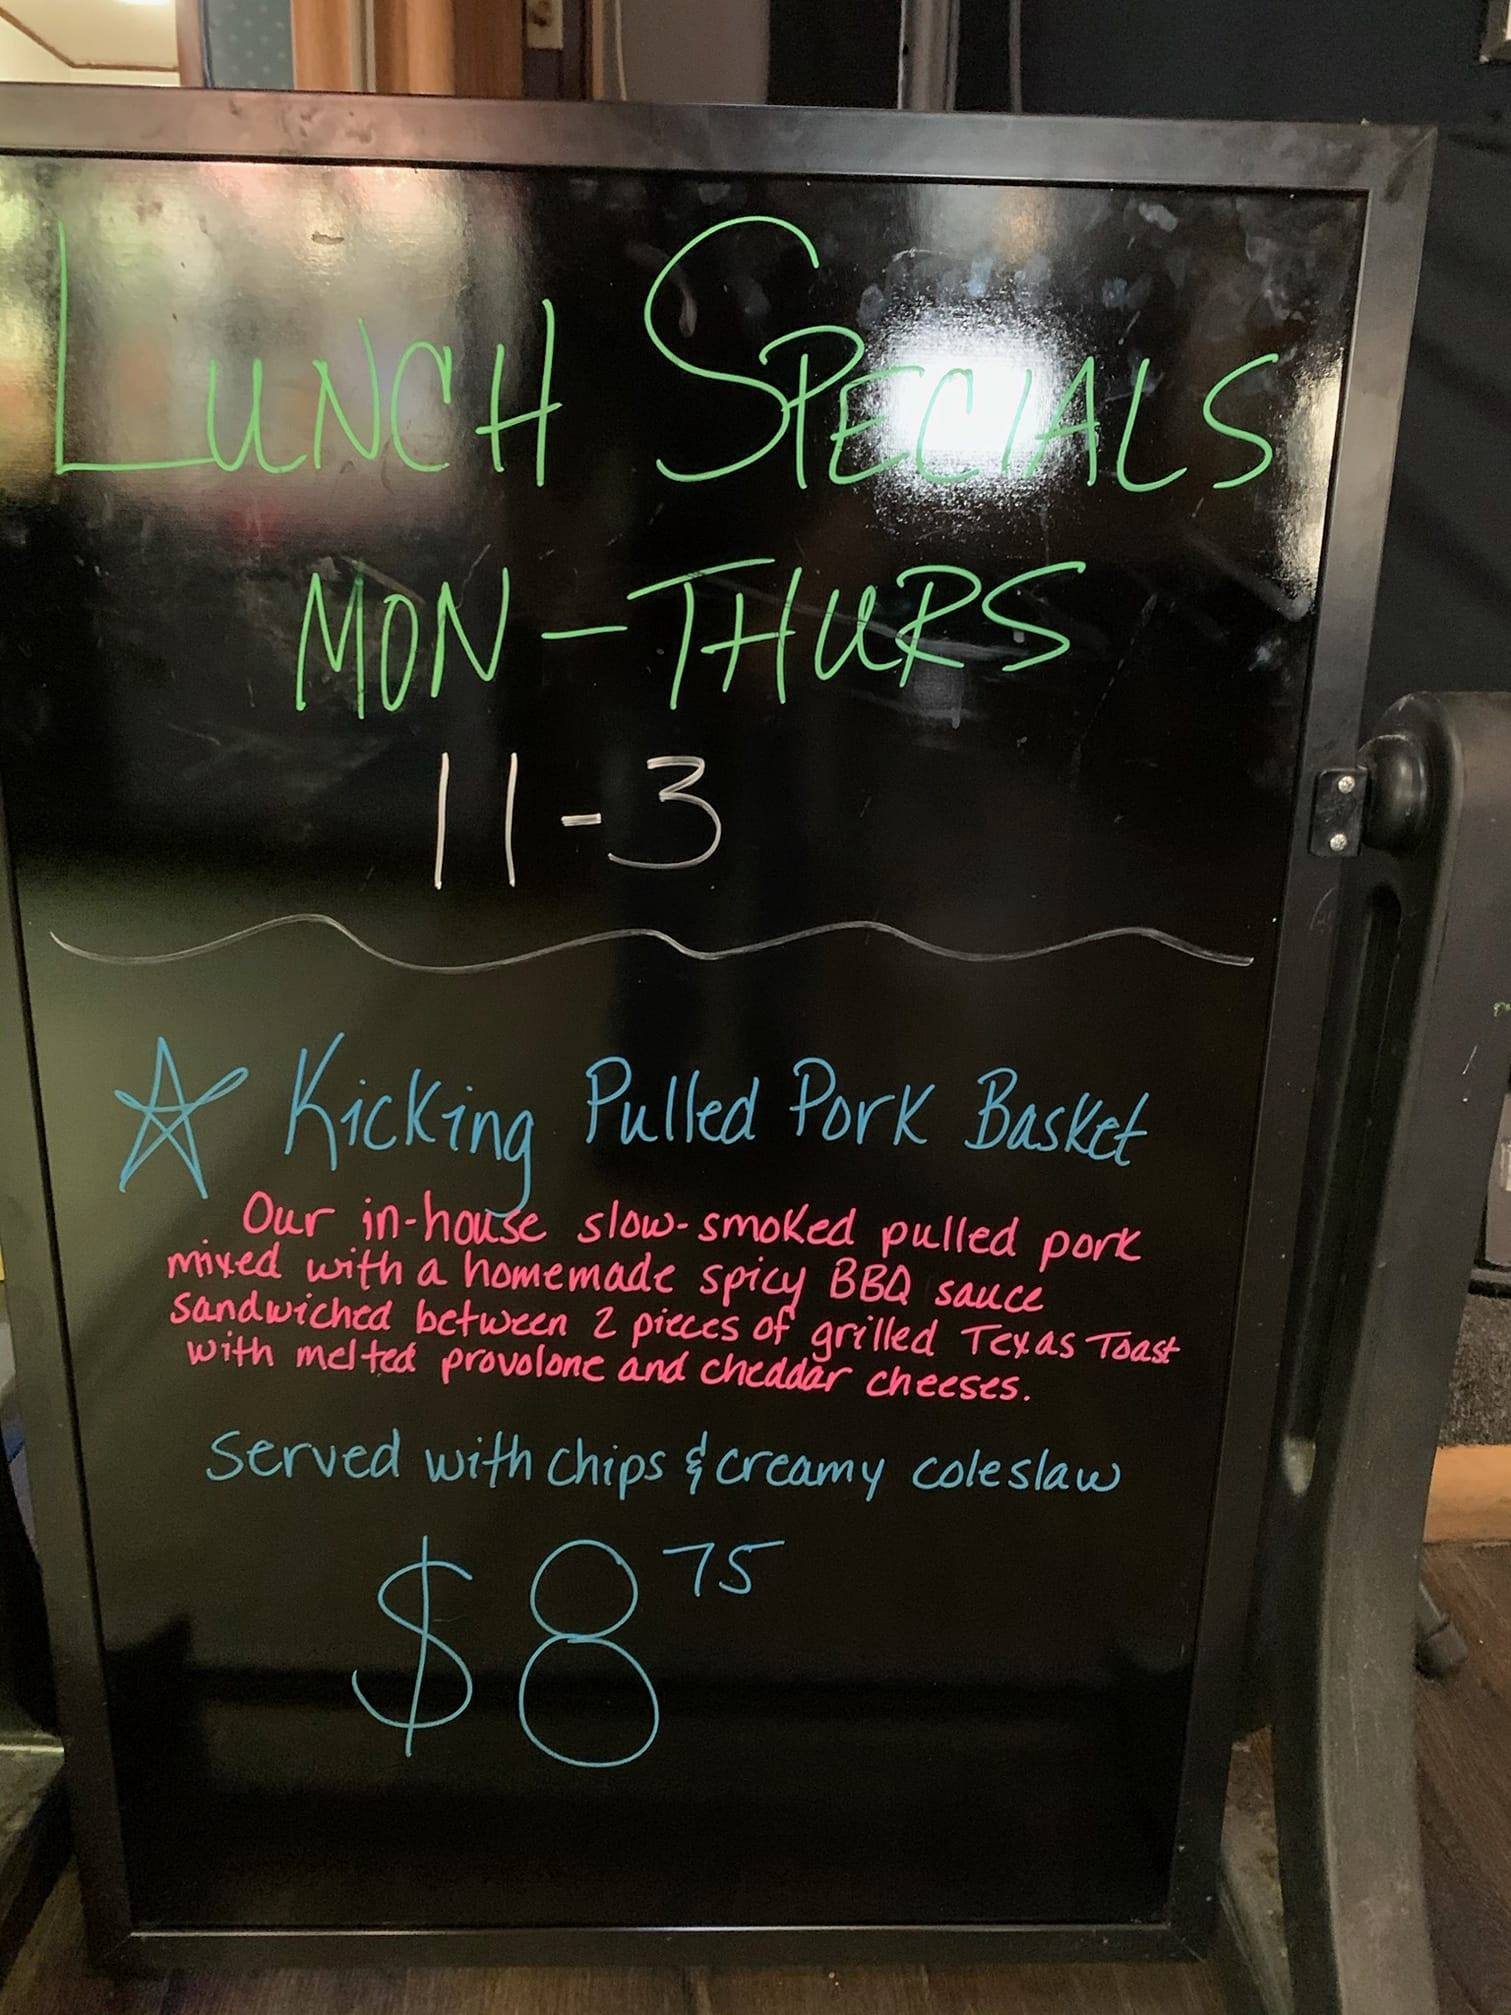 LUNCH SPECIALS
MON-THURS
11-3
Kicking Pulled Pork Basket
Our in-house slow-smoked pulled pork
mixed with a homemade spicy BBQ sauce
sandwiched between 2 pieces of grilled Texas Toast
with melted provolone and cheddar cheeses.
Served with chips & creamy coleslaw
$8 75